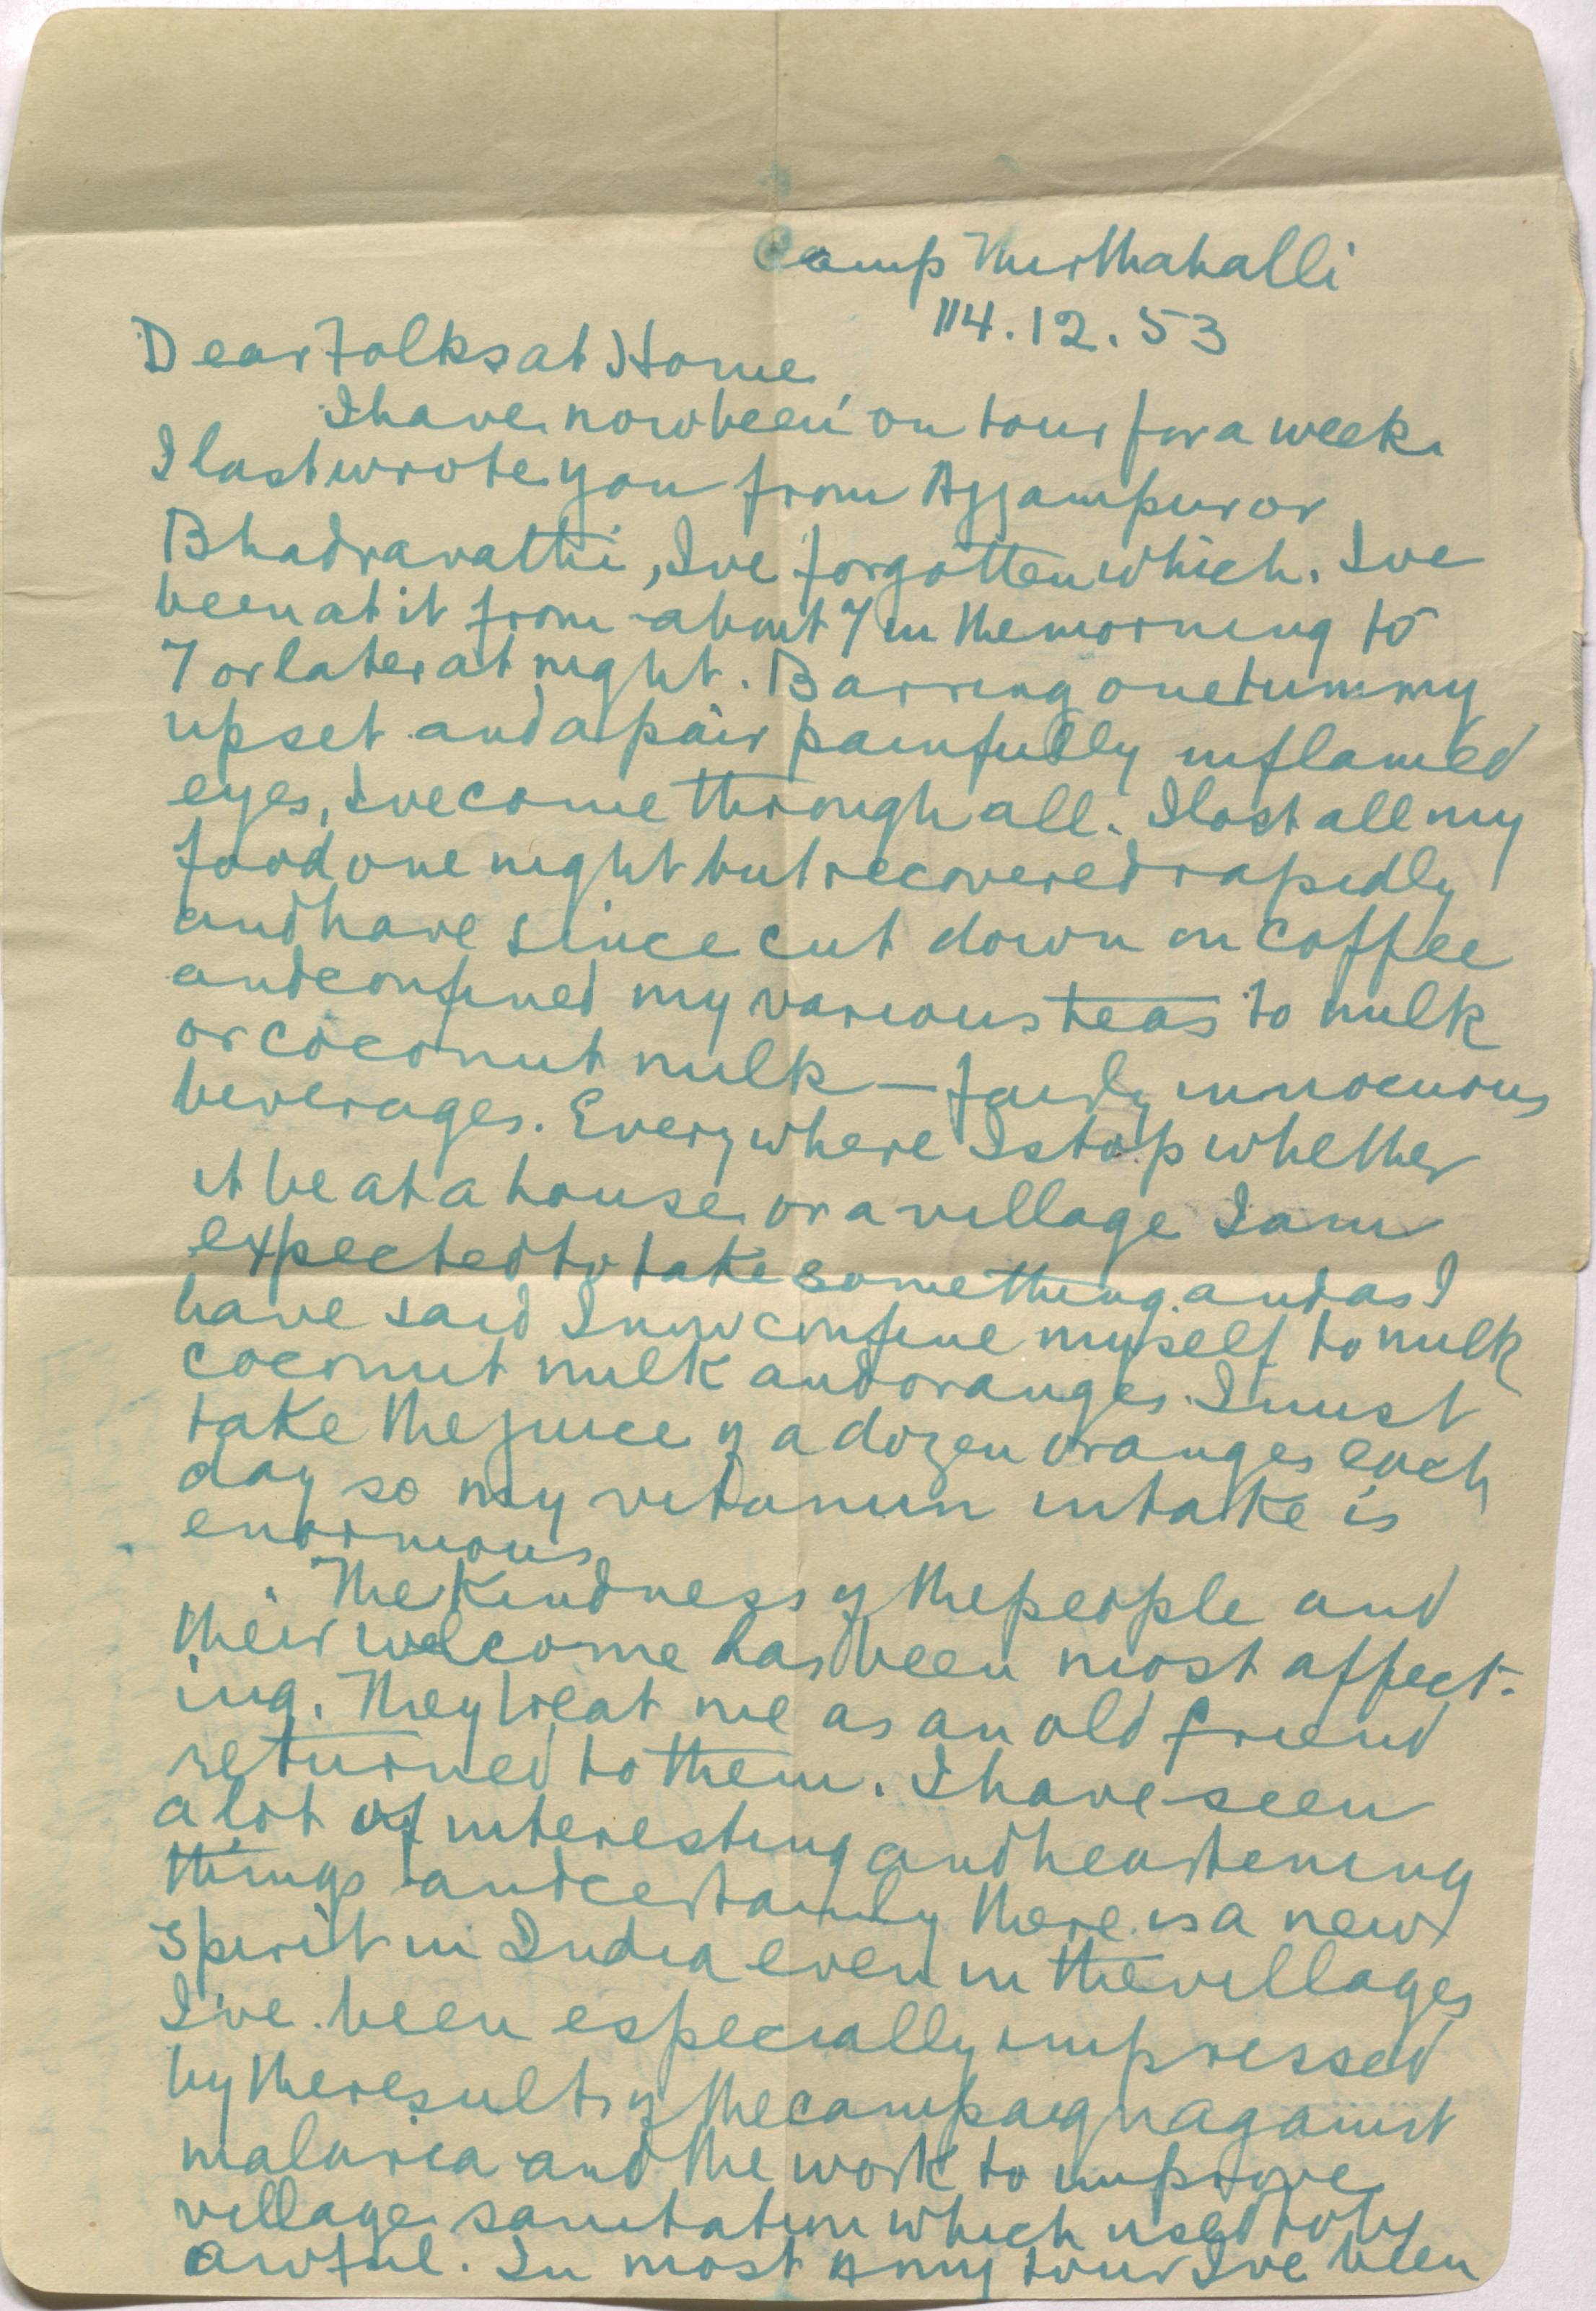 Camp Thirthahalli
14.12.53
Dear Folks at Home
I have now been on tour for a week.
I last wrote you from Ajjampur or
Bhadravathi, I've forgotten which. I've
been at it from about 7 in the morning to
7 or later at night. Barring one tummy
upset and a pair painfully inflamed
eyes, I've come through all. I lost all my
food one night but recovered rapidly
and have since cut down on coffee
and confined my various teas to milk
or coconut milk — fairly innocuous
beverages. Everywhere I stop whether
it be at a house or a village I am
expected to take something and as I
have said I now confine myself to milk
coconut milk and oranges. I must
take the juice of a dozen oranges each
day so my vitamin intake is
enormous.
The Kindness of the people and
their welcome has been most affect-
ing. They treat me as an old friend
returned to them. I have seen
a lot of interesting and heartening
things and certainly there is a new
spirit in India even in the villages
I've been especially impressed
by the results of the campaign against
malaria and the work to improve
village sanitation which used to be
awful. In most of my tour I've been